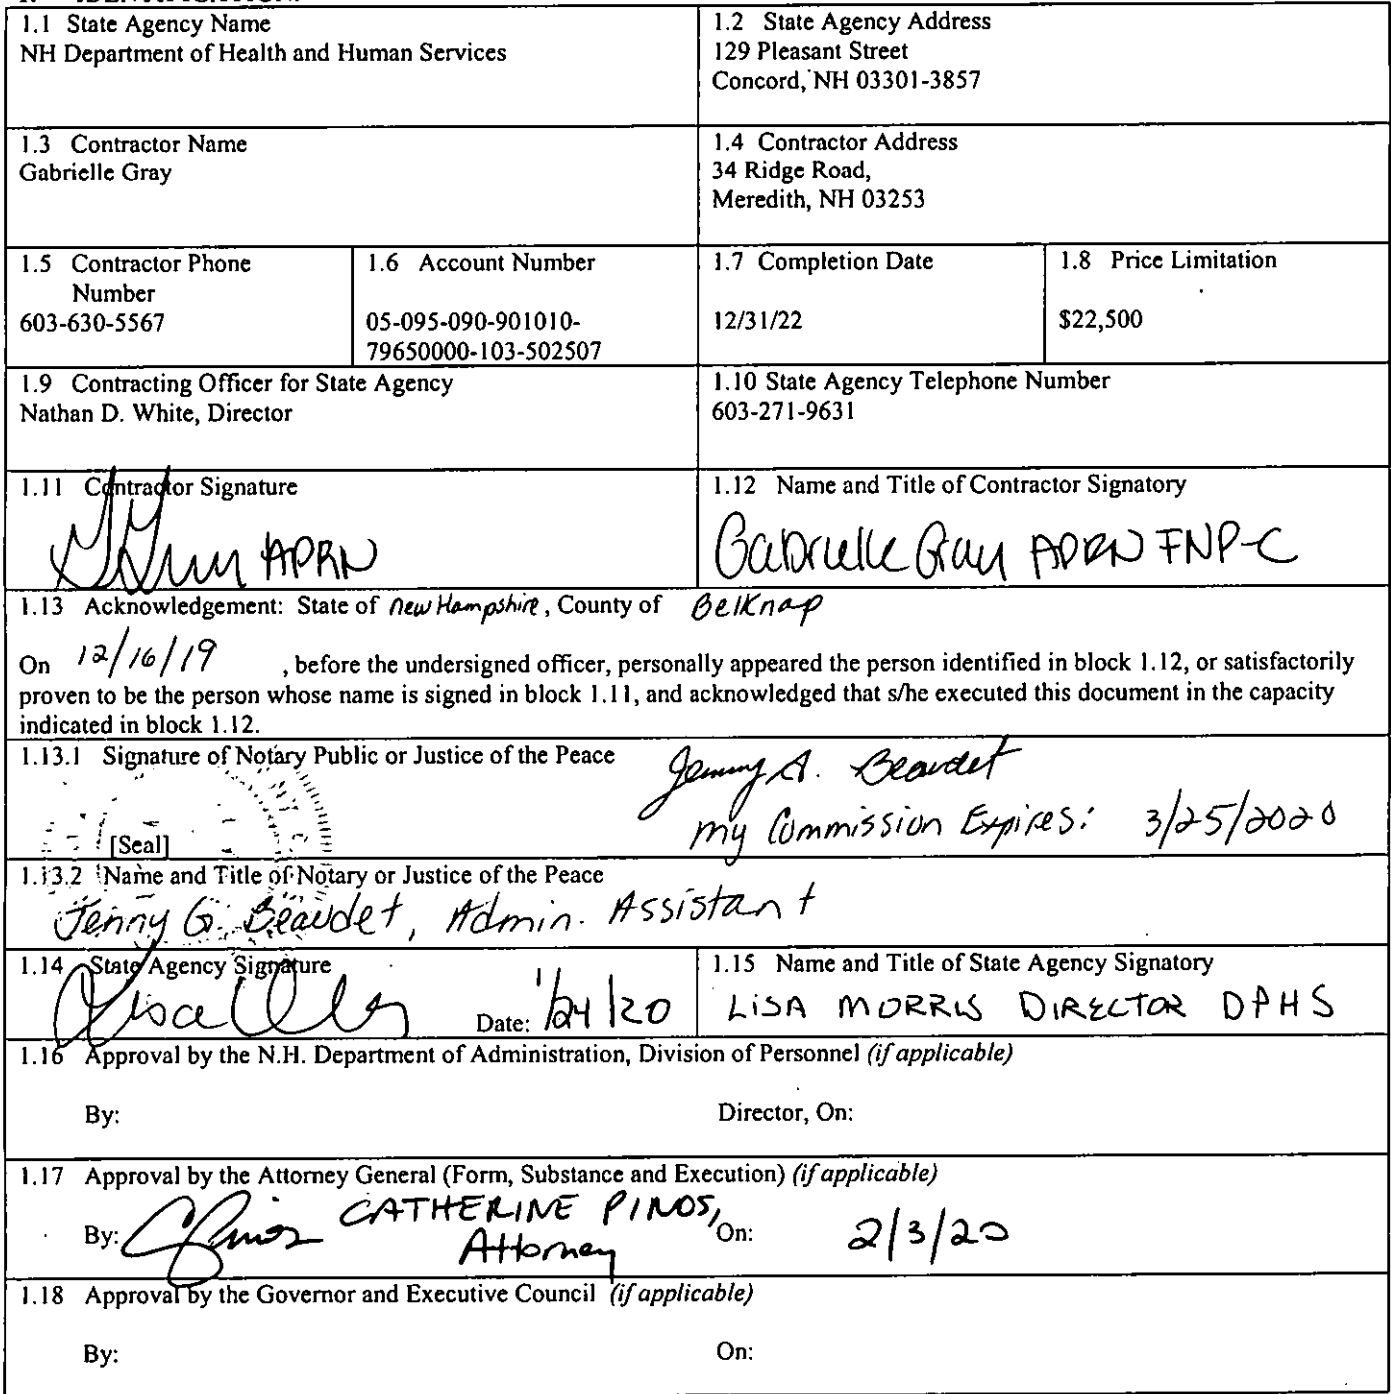 1.1 State Agency Name
NH Department of Health and Human Services
1.2 State Agency Address
129 Pleasant Street
Concord, NH 03301-3857
1.3 Contractor Name
Gabrielle Gray
1.4 Contractor Address
34 Ridge Road,
Meredith, NH 03253
1.5 Contractor Phone
Number
603-630-5567
1.6 Account Number
05-095-090-901010-
79650000-103-502507
1.7 Completion Date
12/31/22
1.8 Price Limitation
$22,500
1.9 Contracting Officer for State Agency
Nathan D. White, Director
1.10 State Agency Telephone Number
603-271-9631
1.11 Contractor Signature
APRN
1.12 Name and Title of Contractor Signatory
Gabrielle Gray APRN FNP-C
1.13 Acknowledgement: State of new Hampshire, County of Belknap
On 12/16/19 , before the undersigned officer, personally appeared the person identified in block 1.12, or satisfactorily
proven to be the person whose name is signed in block 1.11, and acknowledged that s/he executed this document in the capacity
indicated in block 1.12.
1.13.1 Signature of Notary Public or Justice of the Peace
Jenny G. Beaudet
my Commission Expires: 3/25/2020
[Seal]
1.13.2 Name and Title of Notary or Justice of the Peace
Jenny G. Beaudet, Admin. Assistant
1.14 State Agency Signature
Date: 1/24/20
1.15 Name and Title of State Agency Signatory
LISA MORRIS DIRECTOR DPHS
1.16 Approval by the N.H. Department of Administration, Division of Personnel (if applicable)
By: Director, On:
1.17 Approval by the Attorney General (Form, Substance and Execution) (if applicable)
By: CATHERINE PINOS, On: 2/3/20
Attorney
1.18 Approval by the Governor and Executive Council (if applicable)
By: On: